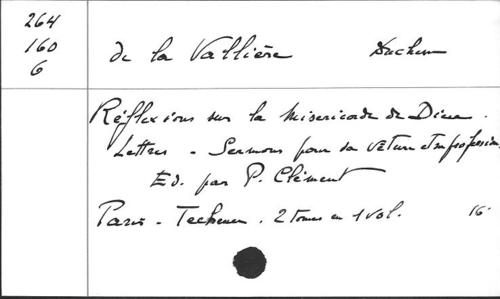 264
160
6
de la Vallière Duchesse
Réflexions sur la Misericorde de Dieu.
Lettres - Sermons pour sa vêture et sa profession.
Ed. par P. Clément
Paris - Techener. 2 tomes en 1 vol. 16°